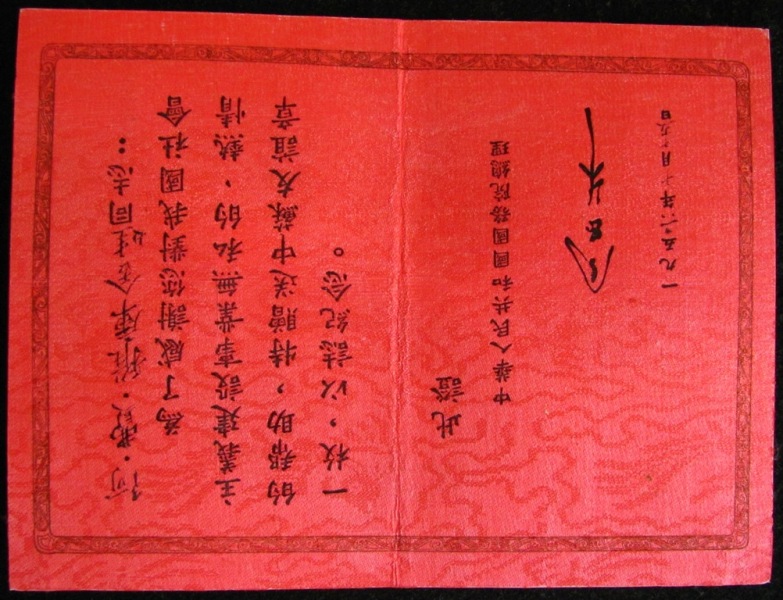 同志:
為了感謝您對我國社會
主義建設事業無私的、熱情
的幫助,特贈送中蘇友誼章
一枚,以誌紀念。
此證
中華人民共和國國務院總理
周恩來
一九五 年 月 日